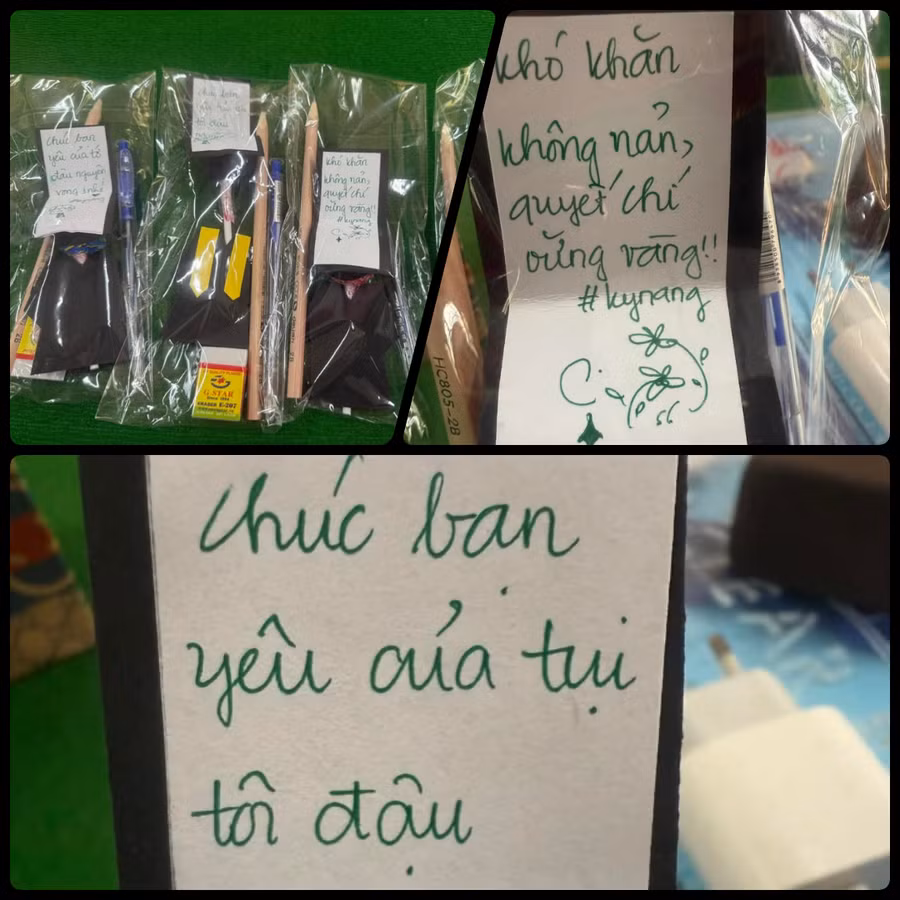 chúc bạn
yêu của tớ
đậu nguyện
vọng
chúc bạn
tôi đậu
khó khăn
không nản,
quyết chí
vững vàng!!
#kynang
G-STAR
ERASER E-207
khó khăn
không nản,
quyết chí
vững vàng!!
#kynang
HC805-2B
chúc bạn
yêu của tụi
tôi đậu